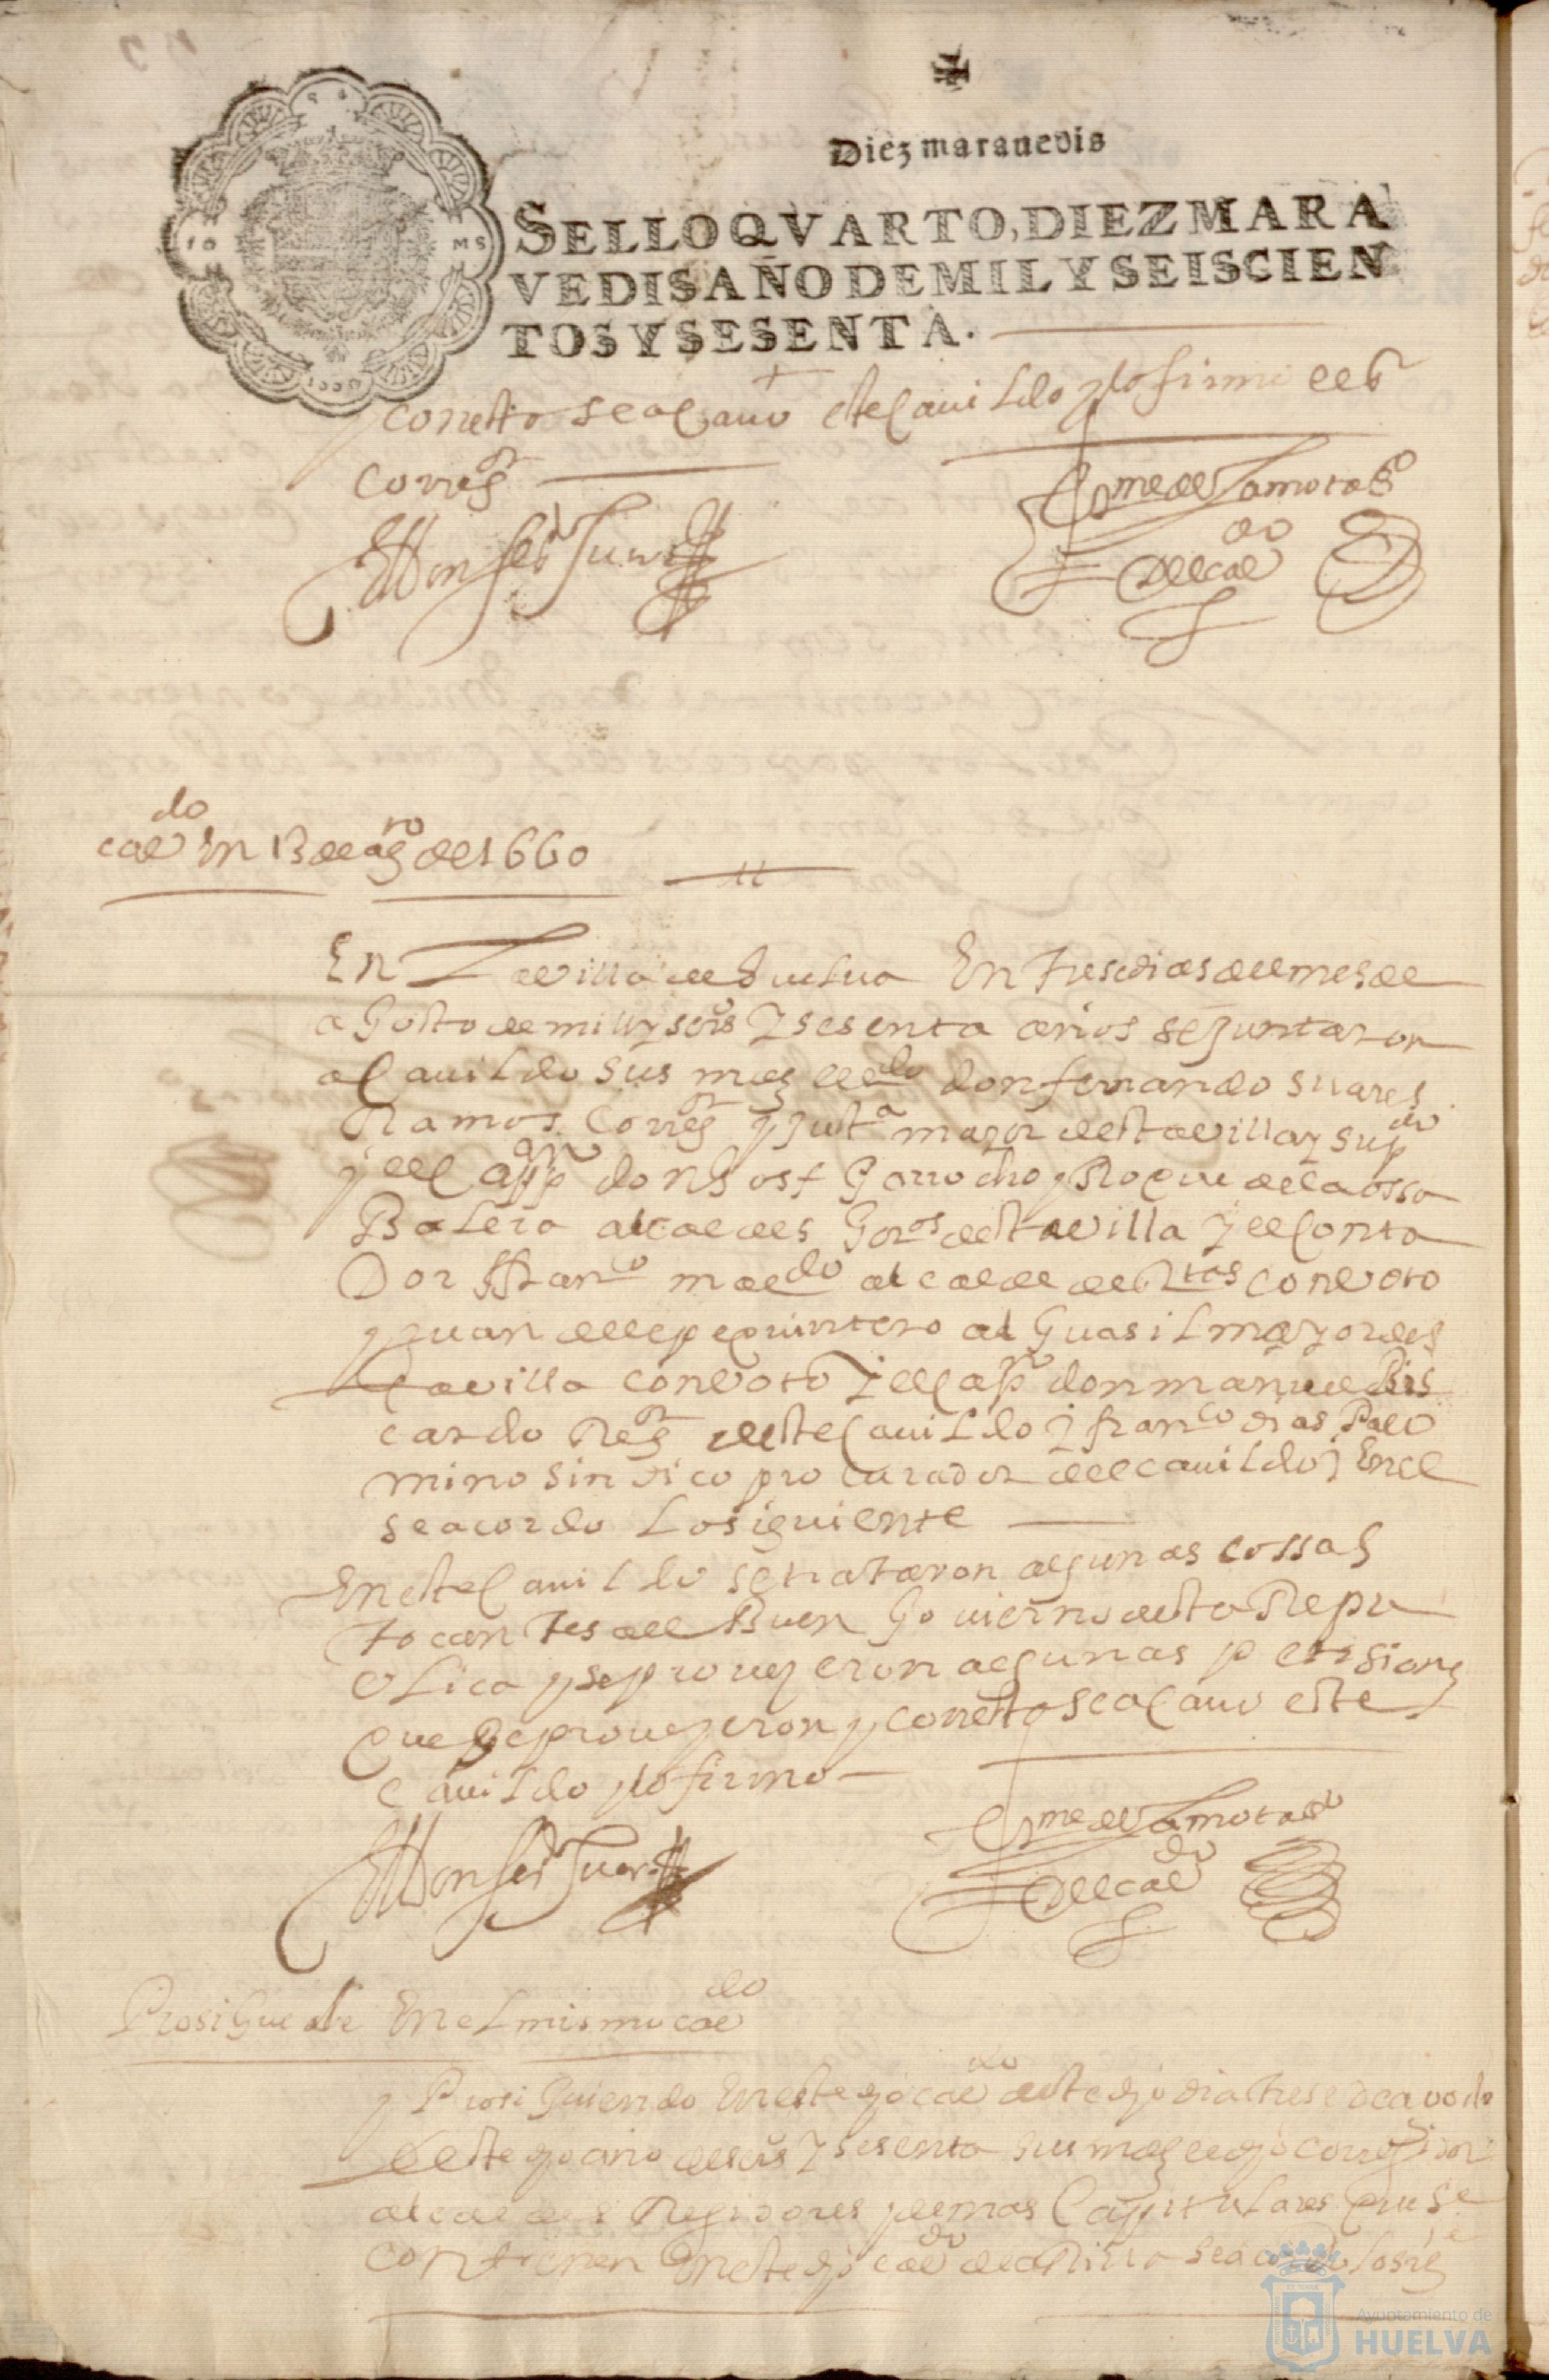 Diez maravedis
SELLO QVARTO, DIEZ MARA
VEDIS AÑO DE MIL Y SEISCIEN
TOS Y SESENTA.
10
MS
1660
y con esto se acavo este cavildo y lo firmo el s
correg or
Bme de Zamora
do
del cae
do
cae en 13 de ag ro de 1660
En la villa de Huelva En trese dias del mes de
agosto de mill y seis y sesenta años se juntaron
a cavildo sus mds el ldo don fernando suares
Ramos Correg or y just a mayor desta villa y su
y el cap don Josf Garrocho y Roque de la ossa
Balera alcaldes desta villa y el Conta
dor franco maldo alcalde con voto
y juan de lepe quintero alguasil mayor des
ta villa con voto y el cap don manuel Bis
cardo Reg or deste cavildo y franco dias Palo
mino sindico procurador del cavildo y En el
se acordo lo siguiente
En este cavildo se trataron algunas cossas
tocantes al Buen Govierno desta Repu
blica y se proveyeron algunas petisiones
que se proveyeron y con esto se acavo este
cavildo y lo firmo
Bme de Zamora
do
del cae
do
Prosigue En el mismo cae
y Prosiguiendo En este dho cae do deste dho dia trese de agosto
deste dho año de seis y sesenta sus mds el dho corregidor
alcaldes Regidores y demas Capitulares que se
contienen En este dho cae do de arriva se acordo lo sig te
Ayuntamiento de
HUELVA